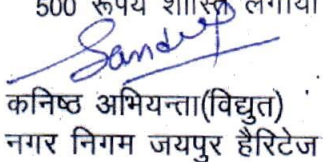 500 रूपये शास्ति लगाया
Sandeep
कनिष्ठ अभियन्ता(विद्युत)
नगर निगम जयपुर हैरिटेज